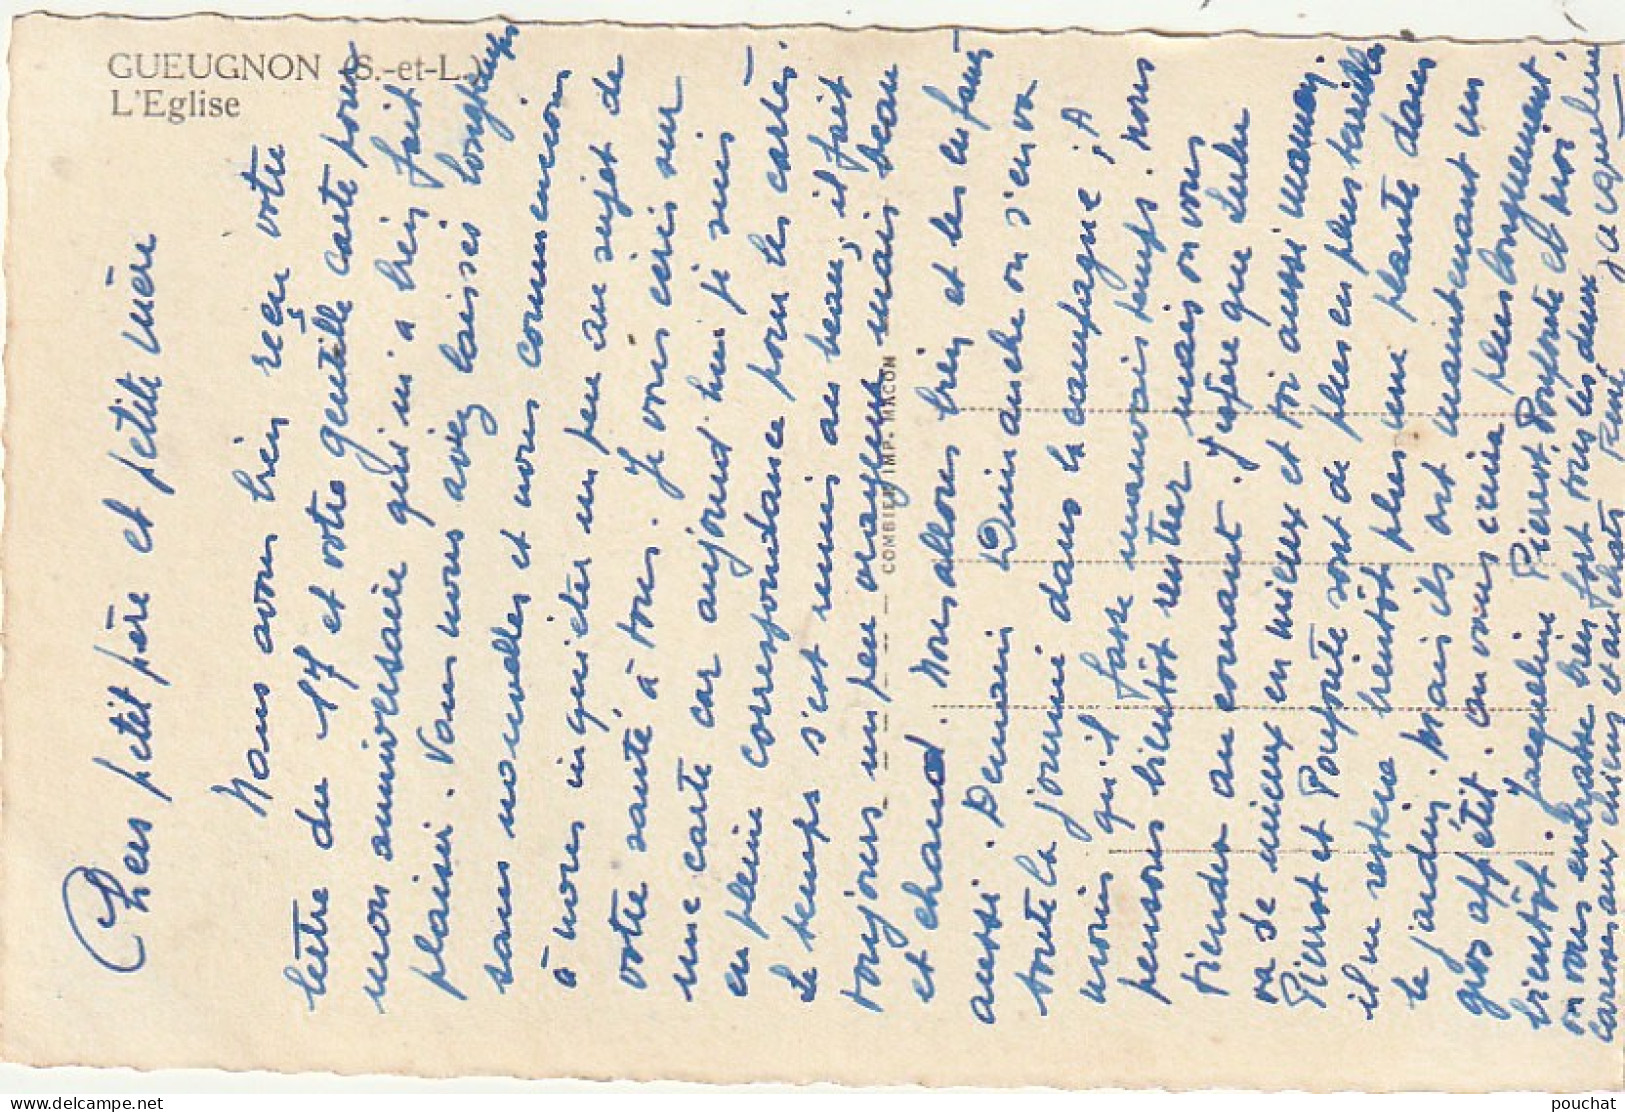 GUEUGNON (S.-et-L.)
L'Eglise
COMBIER IMP. MACON
Chers petit père et petite mère
Nous avons bien reçu votre
lettre du 17 et votre gentille carte pour
mon anniversaire qui m'a bien fait
plaisir. Vous nous aviez laissés longtemps
sans nouvelles et nous commencions
à nous inquiéter un peu au sujet de
votre santé à tous. Je vous écris sur
une carte car aujourd'hui je suis
en pleine correspondance pour les cartes.
Le temps s'est remis au beau, il fait
toujours un peu orageux mais beau
et chaud. Nous allons bien et les enfants
aussi. Demain Dimanche on s'en va
toute la journée dans la campagne, à
moins qu'il fasse mauvais temps. nous
pensons bientôt rentrer mais on vous
tiendra au courant. J'espère que Lulu
va de mieux en mieux et toi aussi maman.
Pierrot et sont de plus en plus terribles
il ne restera bientôt plus une plante dans
le jardin. Mais ils ont maintenant un
gros appétit. On vous écrira plus longuement
bientôt. Jacqueline Pierrot et moi
on vous embrasse bien fort tous les deux
caresses aux chiens et aux chats René Jacqueline
pouchat
delcampe.net